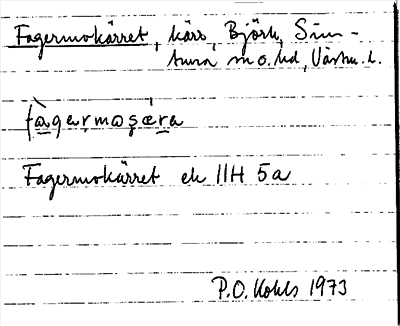 Fagermokärret, kärr, Björk, Sim-
tuna m o. hd, Västm. l.
fàgarmoşǽra
Fagermokärret ek 11H 5a
P.O. Kohls 1973